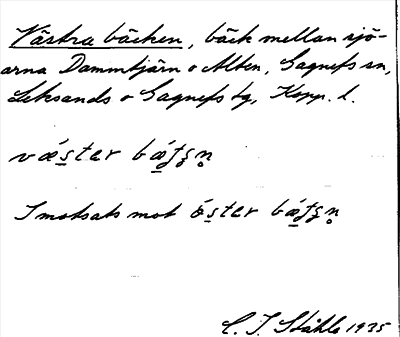 Västra bäcken, bäck mellan sjö-
arna Dammtjärn o Alten, Gagnefs sn,
Leksands o Gagnefs tg, Kopp. l.
væ̀ster
I motsats mot
C. I. Ståhle 1935